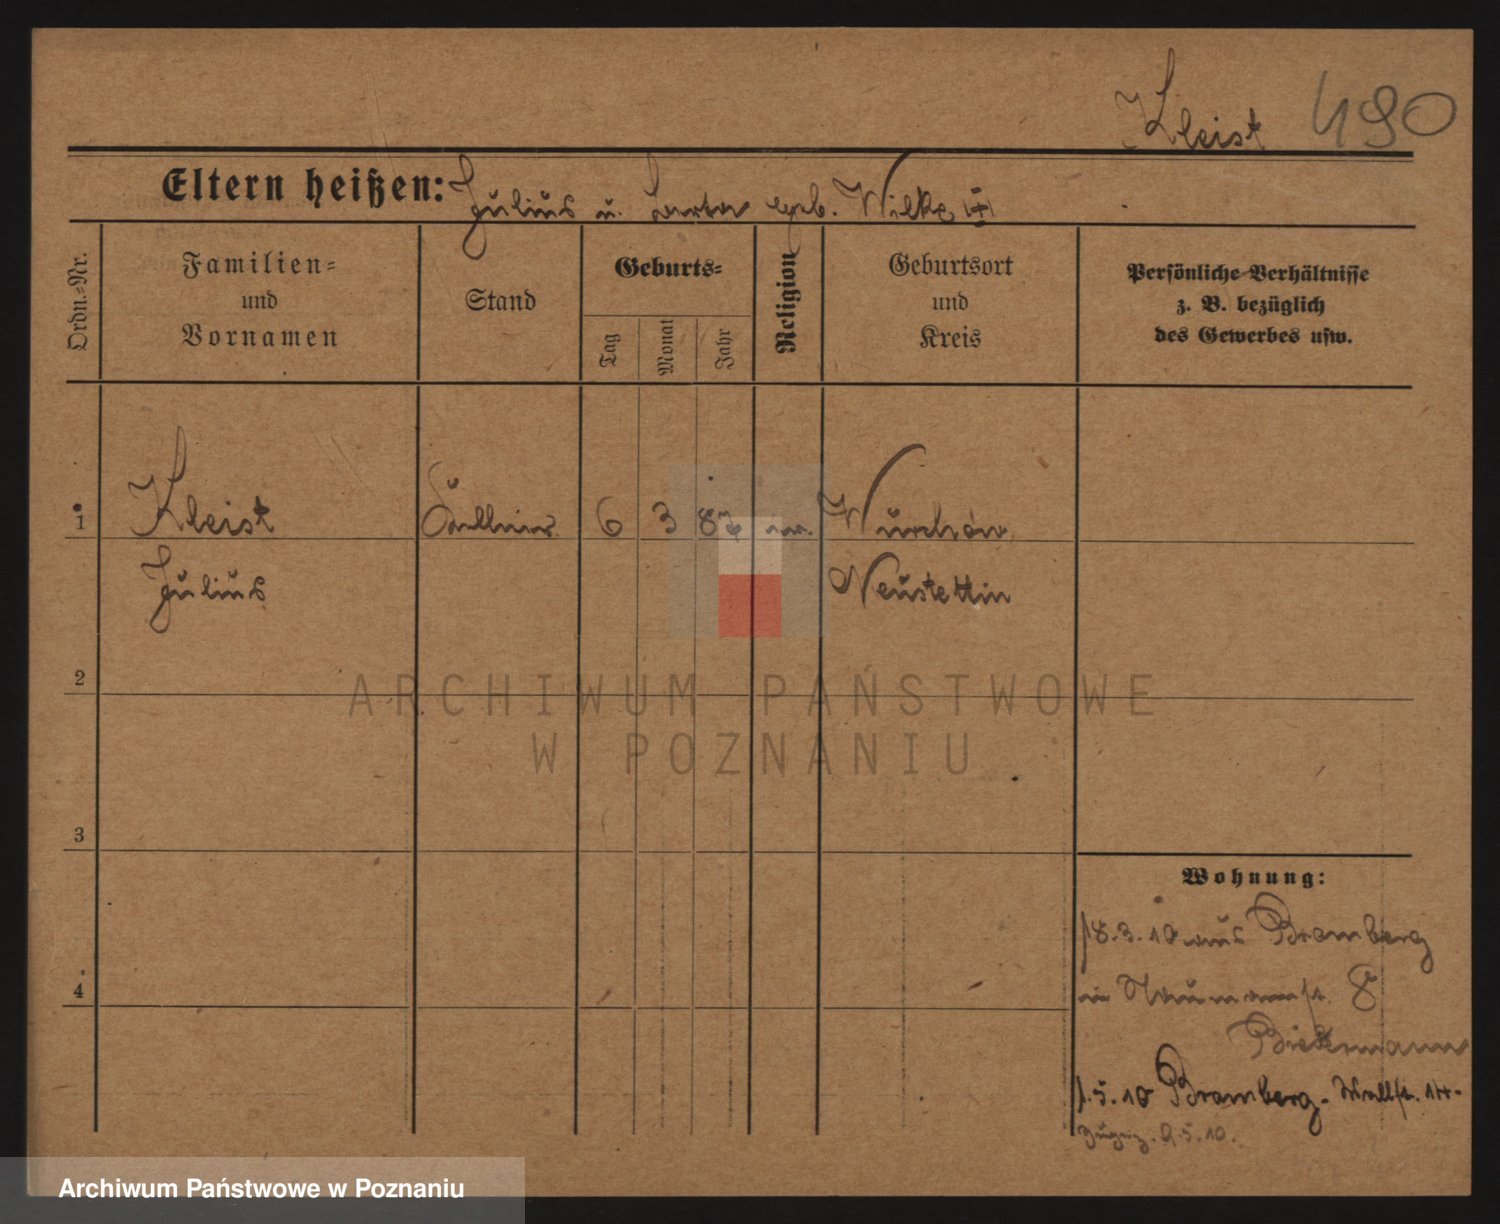 Kleist 490
Eltern heißen: Julius u. geb. Wilke
Ordn.-Nr.
Familien-
und
Vornamen
Stand
Geburts-
Tag
Monat
Jahr
Religion
Geburtsort
und
Kreis
Persönliche Verhältnisse
z. B. bezüglich
des Gewerbes usw.
1 Kleist Kellner 6 3 87 Wurchow
Julius Neustettin
2
3
4
Wohnung:
18.3.10 aus Bromberg
in Naumannst. 8
1.5.10 Bromberg - Wallst. 14.
5.10.
ARCHIWUM PAŃSTWOWE
W POZNANIU
Archiwum Państwowe w Poznaniu